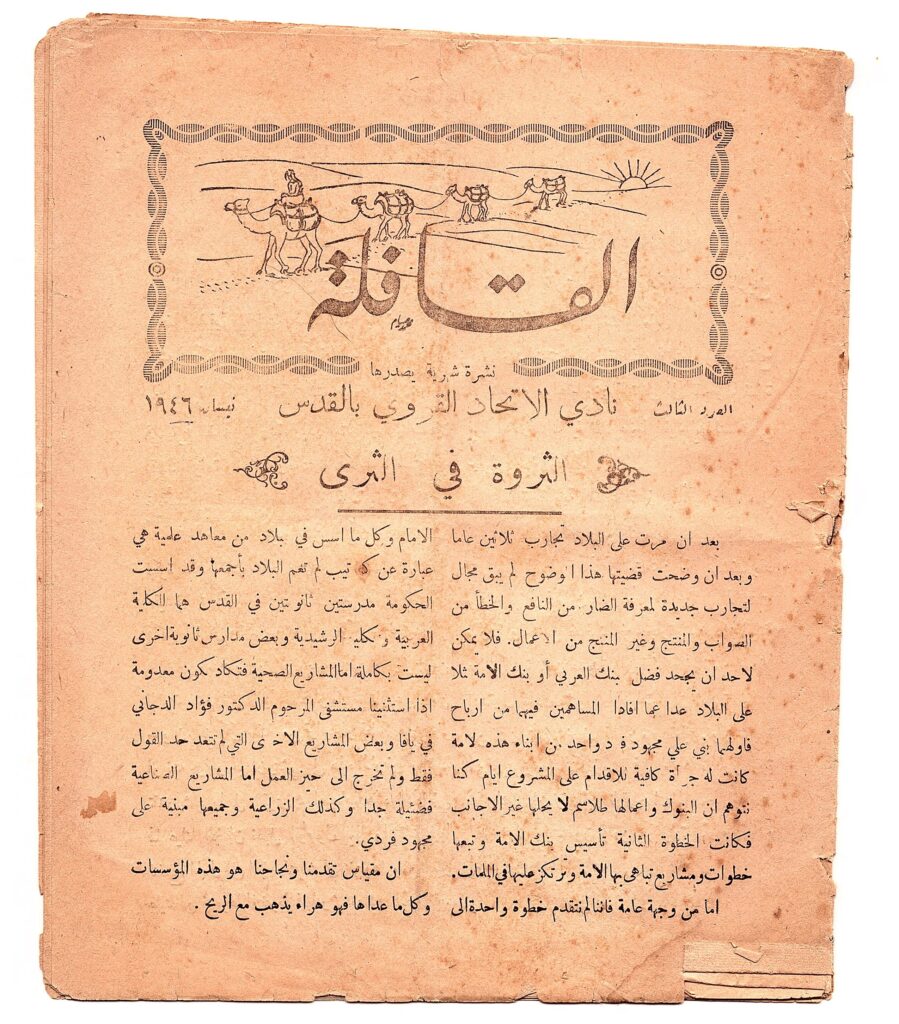 القافلة
نشرة شهرية يصدرها
العدد الثالث
نادي الاتحاد القروي بالقدس
نيسان ١٩٤٦
الثروة في الثرى
بعد ان مرت على البلاد تجارب ثلاثين عاما
وبعد ان وضحت قضيتها هذا الوضوح لم يبق مجال
لتجارب جديدة لمعرفة الضار من النافع والخطأ من
الصواب والمنتج وغير المنتج من الاعمال. فلا يمكن
لاحد ان يجحد فضل بنك العربي أو بنك الامة مثلا
على البلاد عدا عما افادا المساهمين فيهما من ارباح
فاولهما بني علي مجهود فرد واحد من ابناء هذه لامة
كانت له جرأة كافية للاقدام على المشروع ايام كنا
نتوهم ان البنوك واعمالها طلاسم لا يحلها غير الاجانب
فكانت الخطوة الثانية تأسيس بنك الامة وتبعها
خطوات ومشاريع تباهى بها الامة وترتكز عليها في الملمات.
اما من وجهة عامة فاننا لم نتقدم خطوة واحدة الى
الامام وكل ما اسس في بلاد من معاهد علمية هي
عبارة عن كتاتيب لم تعم البلاد بأجمعها وقد اسست
الحكومة مدرستين ثانويتين في القدس هما الكلية
العربية والكلية الرشيدية وبعض مدارس ثانوية اخرى
ليست بكاملة اما المشاريع الصحية فتكاد تكون معدومة
اذا استثنينا مستشفى المرحوم الدكتور فؤاد الدجاني
في يافا وبعض المشاريع الاخرى التي لم تتعد حد القول
فقط ولم تخرج الى حيز العمل اما المشاريع الصناعية
فضئيلة جدا وكذلك الزراعية وجميعها مبنية على
مجهود فردي.
ان مقياس تقدمنا ونجاحنا هو هذه المؤسسات
وكل ما عداها فهو هراء يذهب مع الريح .